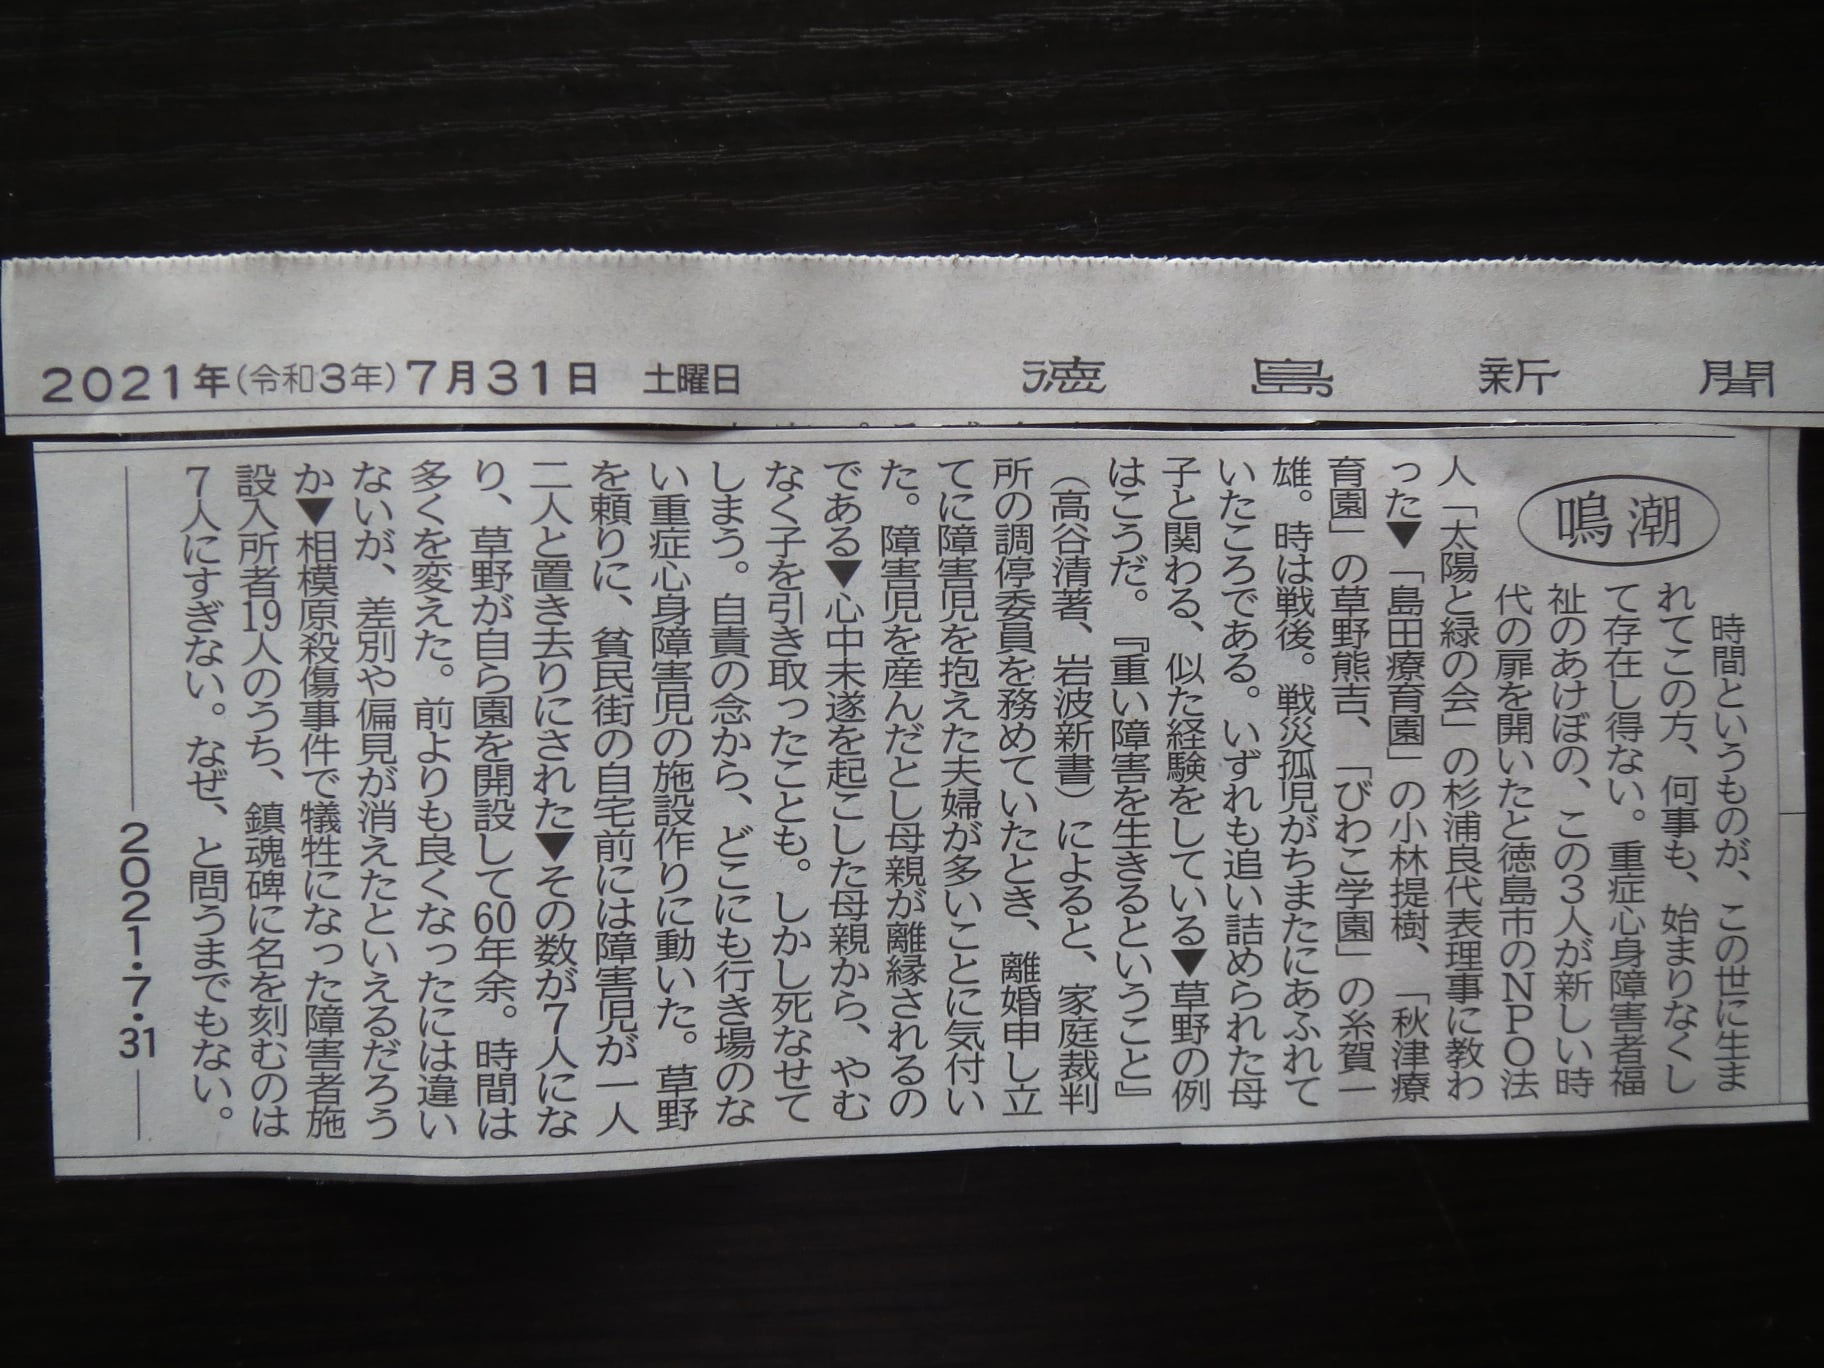 2021年(令和3年)7月31日 土曜日 徳島新聞
鳴潮
時間というものが、この世に生ま
れてこの方、何事も、始まりなくし
て存在し得ない。重症心身障害者福
祉のあけぼの、この3人が新しい時
代の扉を開いたと徳島市のNPO法
人「太陽と緑の会」の杉浦良代表理事に教わ
った▼「島田療育園」の小林提樹、「秋津療
育園」の草野熊吉、「びわこ学園」の糸賀一
雄。時は戦後。戦災孤児がちまたにあふれて
いたころである。いずれも追い詰められた母
子と関わる、似た経験をしている▼草野の例
はこうだ。『重い障害を生きるということ』
(高谷清著、岩波新書)によると、家庭裁判
所の調停委員を務めていたとき、離婚申し立
てに障害児を抱えた夫婦が多いことに気付い
た。障害児を産んだとし母親が離縁されるの
である▼心中未遂を起こした母親から、やむ
なく子を引き取ったことも。しかし死なせて
しまう。自責の念から、どこにも行き場のな
い重症心身障害児の施設作りに動いた。草野
を頼りに、貧民街の自宅前には障害児が一人
二人と置き去りにされた▼その数が7人にな
り、草野が自ら園を開設して60年余。時間は
多くを変えた。前よりも良くなったには違い
ないが、差別や偏見が消えたといえるだろう
か▼相模原殺傷事件で犠牲になった障害者施
設入所者19人のうち、鎮魂碑に名を刻むのは
7人にすぎない。なぜ、と問うまでもない。
2021・7・31